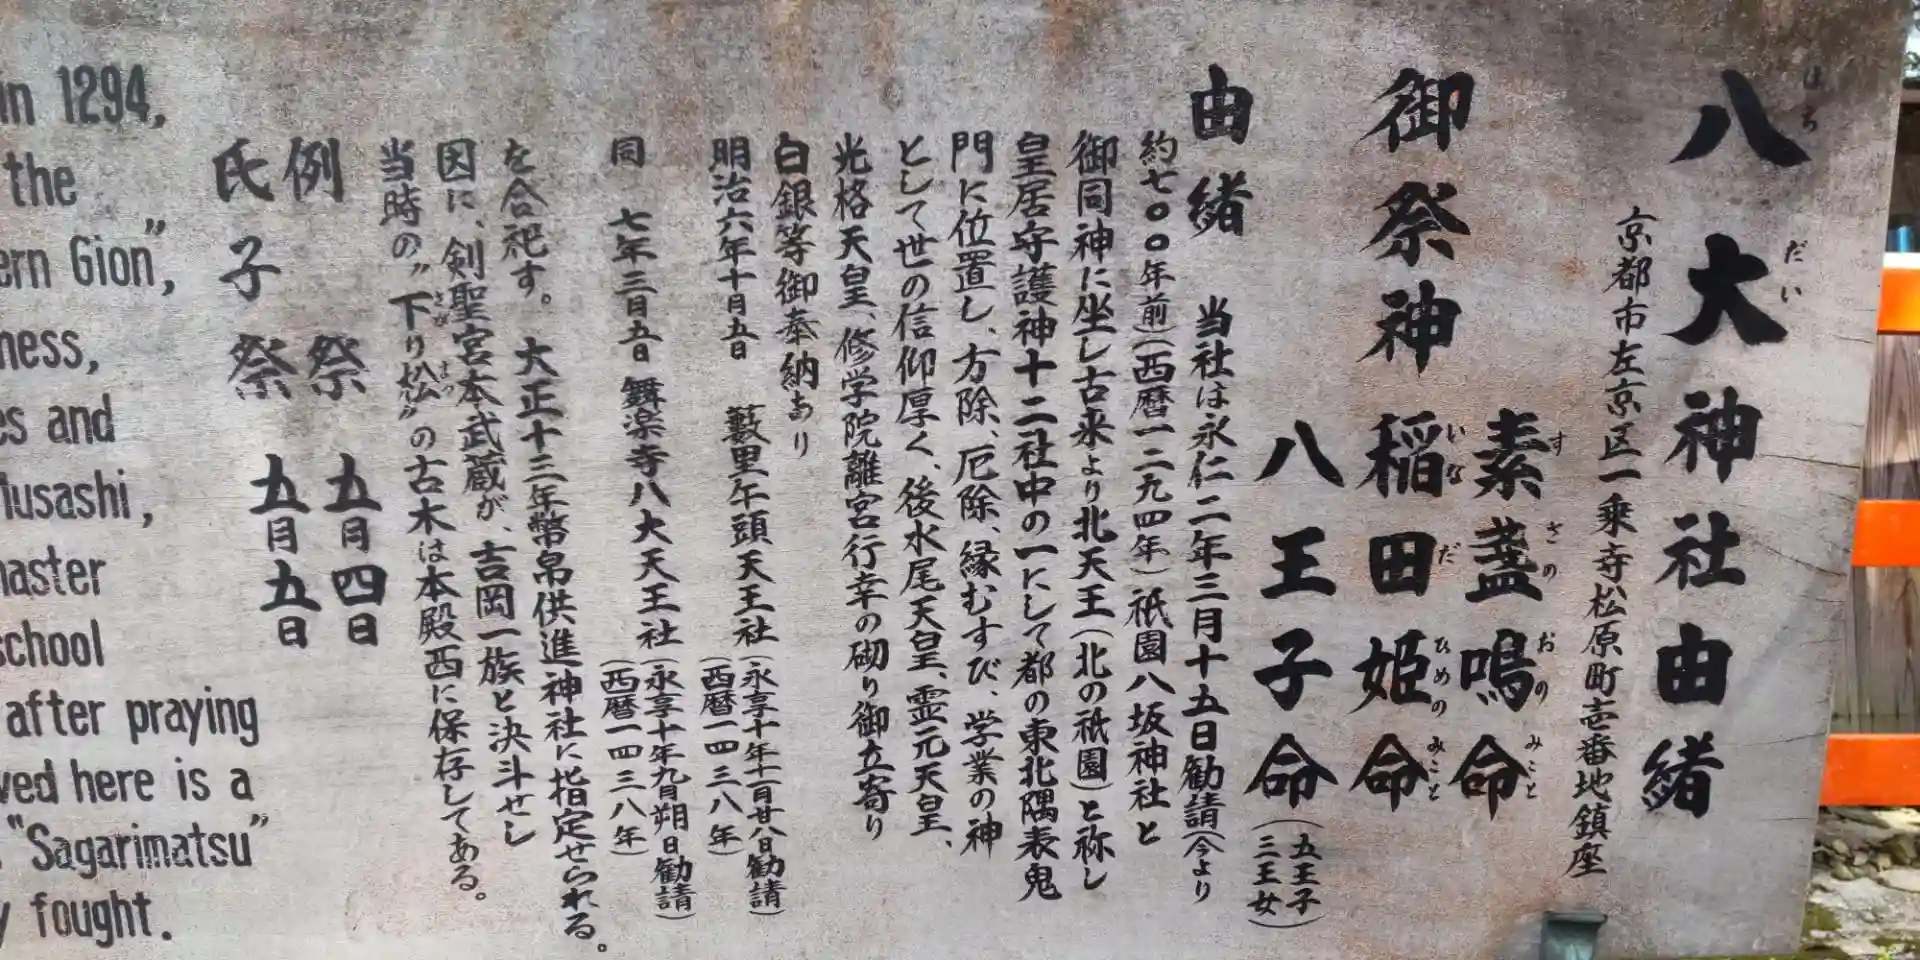 八大神社由緒
はち だい
京都市左京区一乗寺松原町壱番地鎮座
御祭神
素盞嗚命
す さの おの みこと
稲田姫命
いな だ ひめの みこと
八王子命
(五王子
三王女)
由緒
当社は永仁二年三月十五日勧請(今より
約七〇〇年前)(西暦一二九四年)祇園八坂神社と
御同神に坐し古来より北天王(北の祇園)と称し
皇居守護神十二社中の一にして都の東北隅表鬼
門に位置し、方除、厄除、縁むすび、学業の神
として世の信仰厚く、後水尾天皇、霊元天皇、
光格天皇、修学院離宮行幸の砌り御立寄り
白銀等御奉納あり
明治六年十月五日 藪里午頭天王社(永享十年十一月廿八日勧請)
(西暦一四三八年)
同 七年三日五日 舞楽寺八大天王社(永享十年九月朔日勧請)
(西暦一四三八年)
を合祀す。 大正十三年幣帛供進神社に指定せられる。
因に、剣聖宮本武蔵が、吉岡一族と決斗せし
当時の〝下り松〟の古木は本殿西に保存してある。
さが まつ
例祭 五月四日
氏子祭 五月五日
in 1294,
the
ern Gion",
ness,
es and
Musashi,
master
school
after praying
ved here is a
"Sagarimatsu"
y fought.